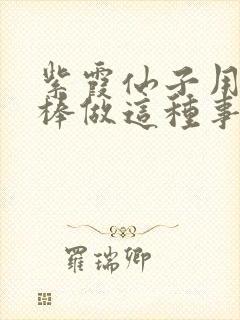 紫霞仙子用
棒做這種事
羅瑞卿